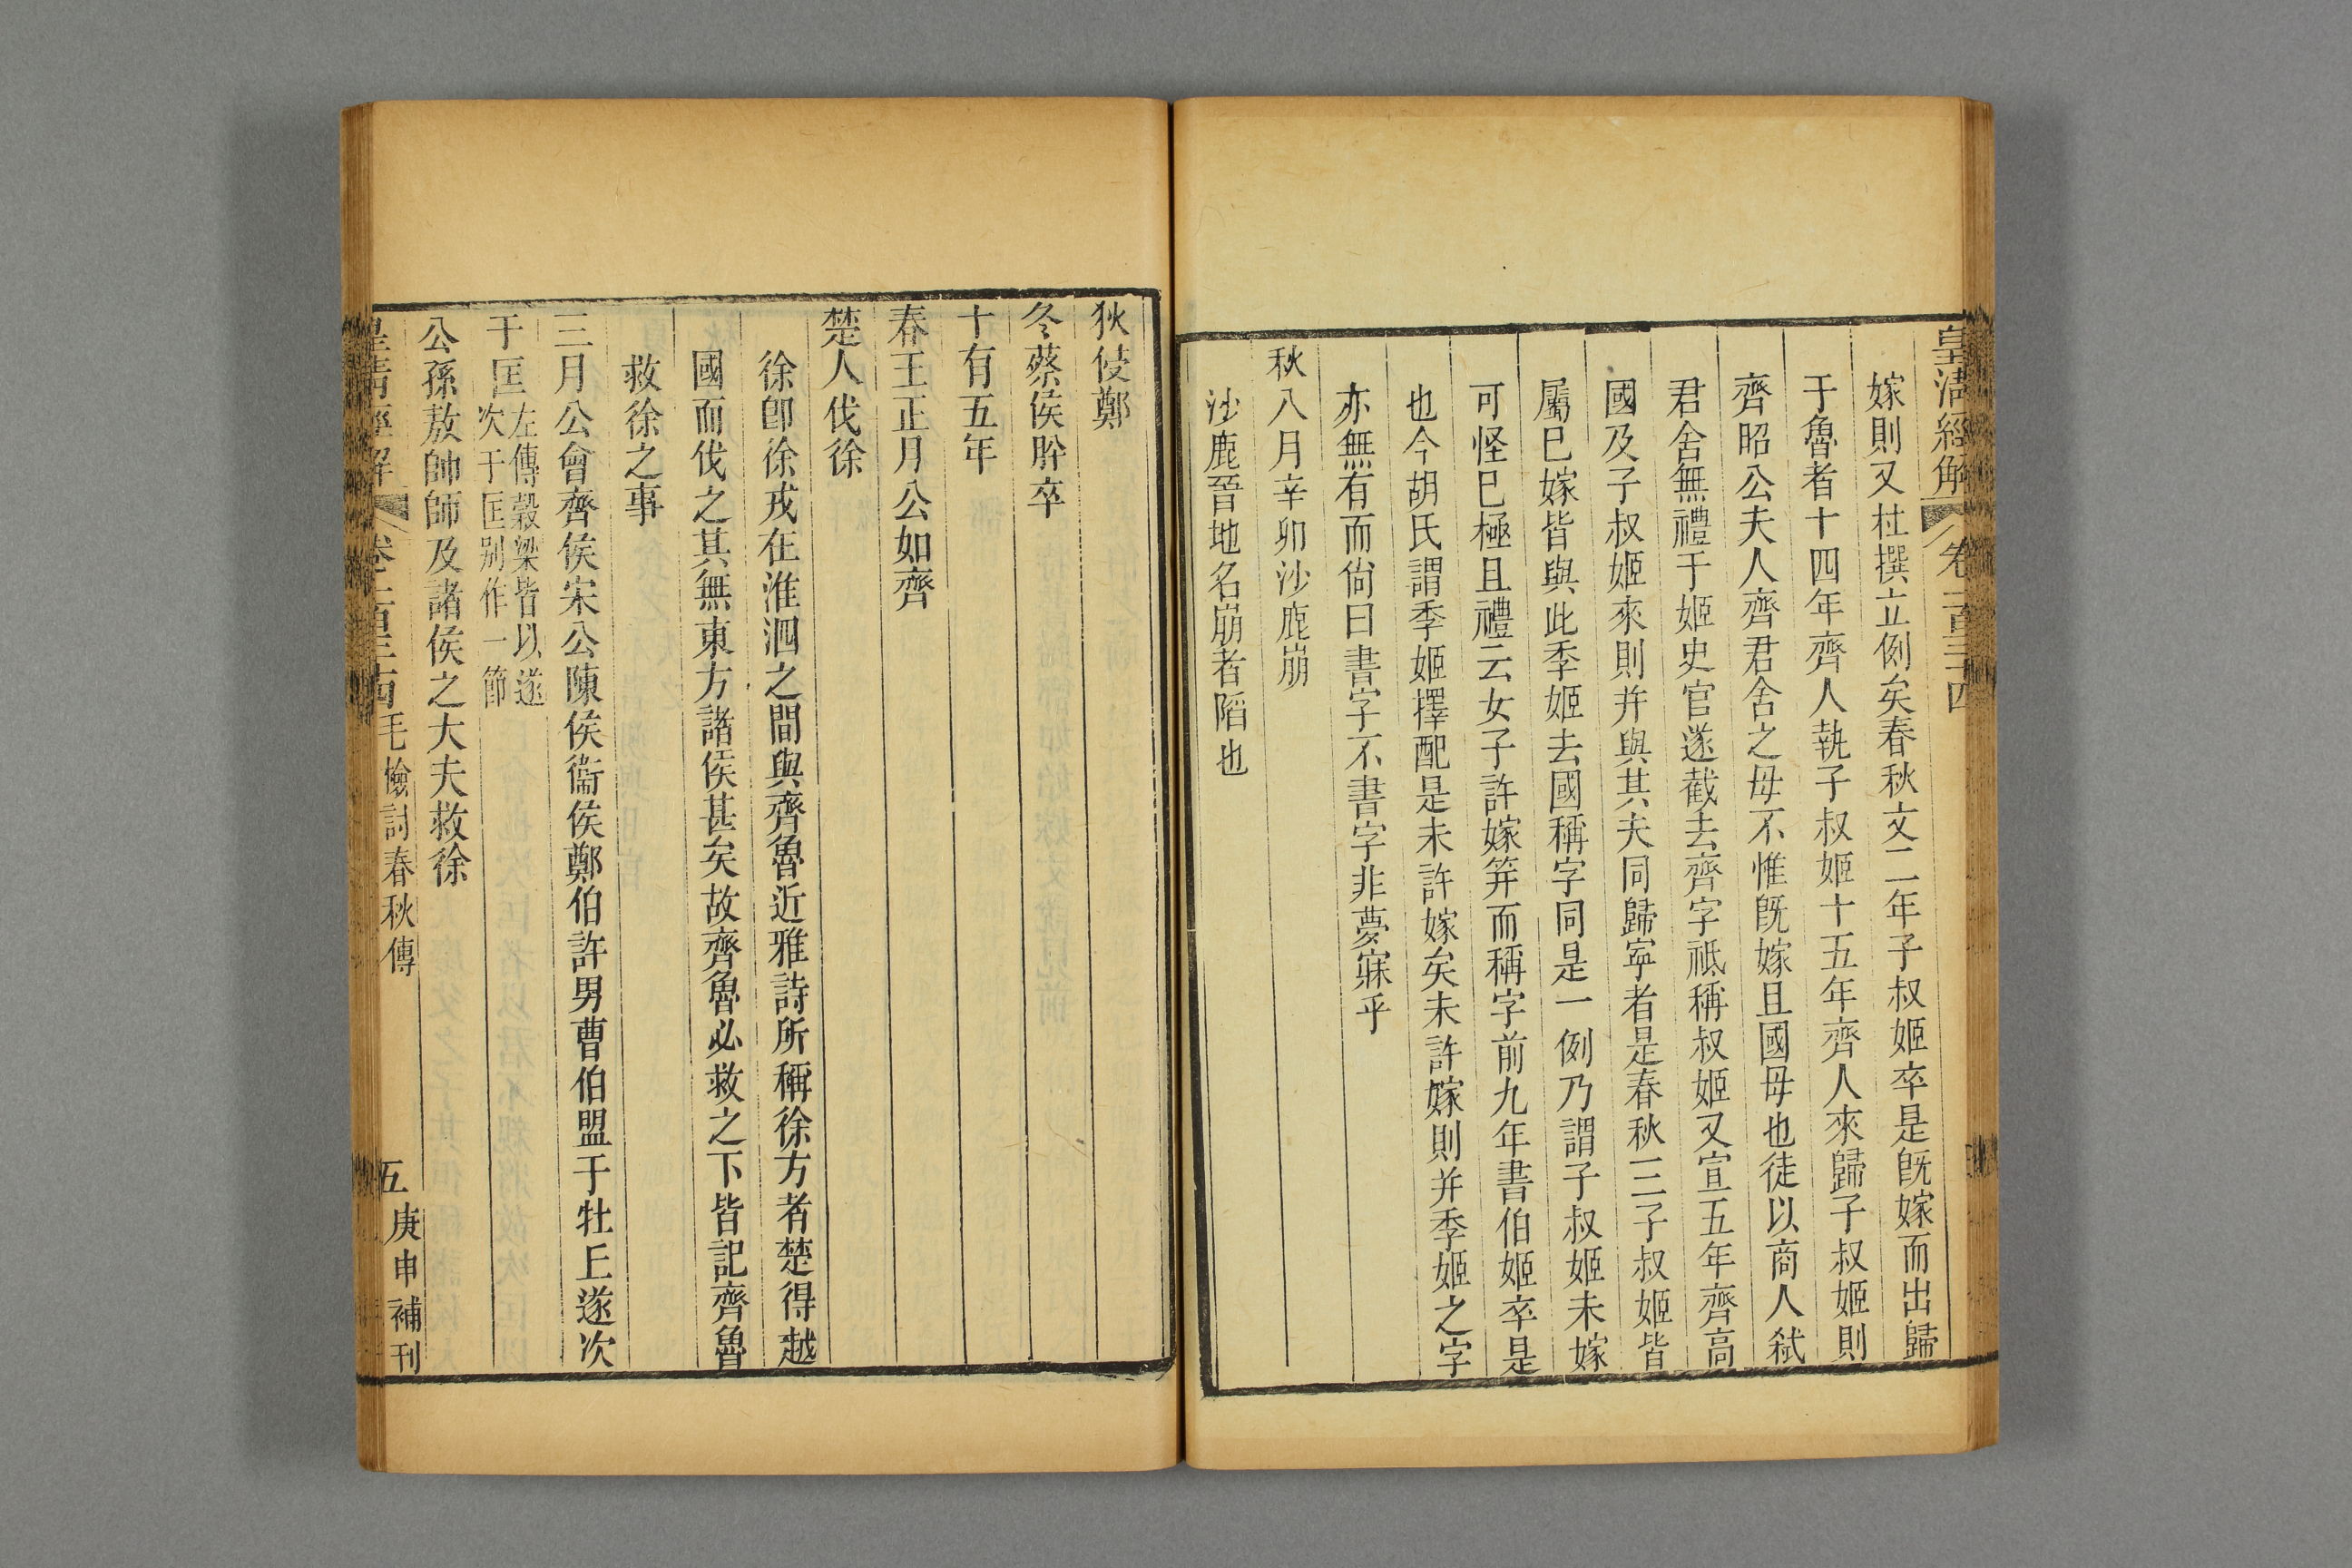 皇清經解 卷一百三十四
嫁則又杜撰立例矣春秋文二年子叔姬卒是旣嫁而出歸
于魯者十四年齊人執子叔姬十五年齊人來歸子叔姬則
齊昭公夫人齊君舍之母不惟旣嫁且國母也徒以商人弑
君舍無禮于姬史官遂截去齊字祗稱叔姬又宣五年齊高
國及子叔姬來則并與其夫同歸寧者是春秋三子叔姬皆
屬已嫁皆與此季姬去國稱字同是一例乃謂子叔姬未嫁
可怪已極且禮云女子許嫁筓而稱字前九年書伯姬卒是
也今胡氏謂季姬擇配是未許嫁矣未許嫁則并季姬之字
亦無有而尙曰書字不書字非夢寐乎
秋八月辛卯沙鹿崩
沙鹿晉地名崩者陷也
狄侵鄭
冬蔡侯肸卒
十有五年
春王正月公如齊
楚人伐徐
徐卽徐戎在淮泗之間與齊魯近雅詩所稱徐方者楚得越
國而伐之其無東方諸侯甚矣故齊魯必救之下皆記齊魯
救徐之事
三月公會齊侯宋公陳侯衞侯鄭伯許男曹伯盟于牡丘遂次
于匡左傳穀梁皆以遂次于匡别作一節
公孫敖帥師及諸侯之大夫救徐
皇清經解 卷一百三十四 毛檢討春秋傳 五 庚申補刊